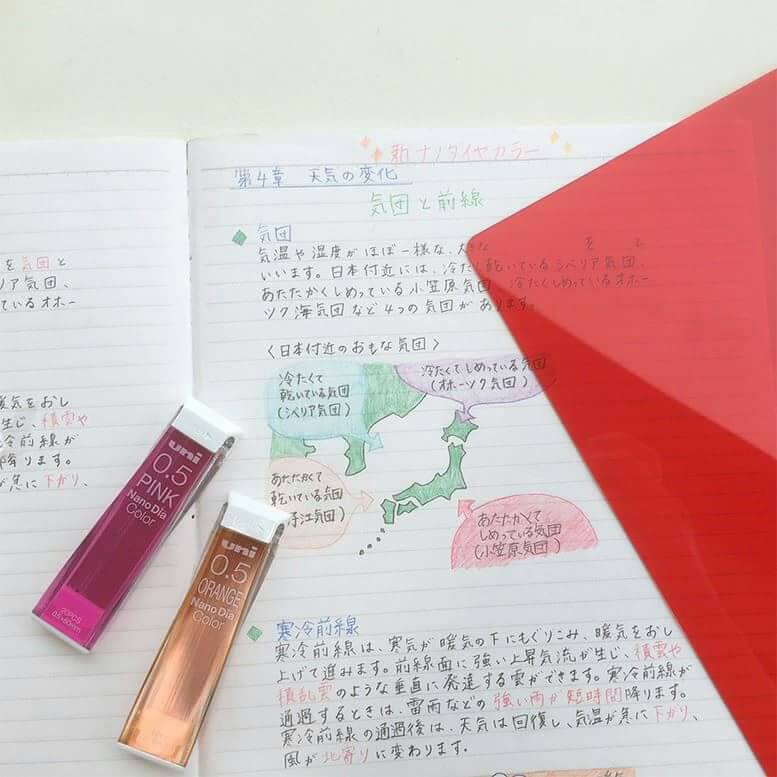 新ナノダイヤカラー
第4章 天気の変化
気団と前線
気団
気温や湿度がほぼ一様な、大きな を と
いいます。日本付近には、冷たく乾いているシベリア気団、
あたたかくしめっている小笠原気団、冷たくしめっているオホー
ツク海気団など4つの気団があります。
〈日本付近のおもな気団〉
冷たくて
乾いている気団
(シベリア気団)
冷たくてしめっている気団
(オホーツク気団)
あたたかくて
乾いている気団
江気団)
あたたかくて
しめっている気団
(小笠原気団)
寒冷前線
寒冷前線は、寒気が暖気の下にもぐりこみ、暖気をおし
上げて進みます。前線面に強い上昇気流が生じ、積雲や
積乱雲のような垂直に発達する雲ができます。寒冷前線が
通過するときは、雷雨などの強い雨が短時間降ります。
寒冷前線の通過後は、天気は回復し、気温が急に下がり、
風が北寄りに変わります。
を気団と
リア気団、
ているオホー
暖気をおし
生じ、積雲や
冷前線が
降ります。
が急に下がり、
uni
0.5
PINK
Nano Dia
Color
20PCS
0.5×60mm
uni
0.5
ORANGE
Nano Dia
Color